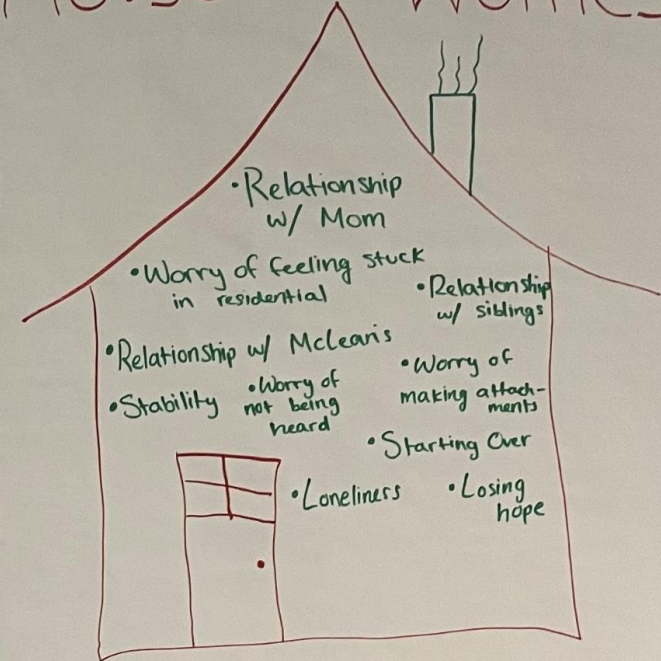 • Relationship
w/ Mom
• Worry of feeling stuck
in residential
• Relationship
w/ siblings
• Relationship w/ Mclean's
• Worry of
making attach-
ments
• Stability
• Worry of
not being
heard
• Starting Over
• Loneliness
• Losing
hope